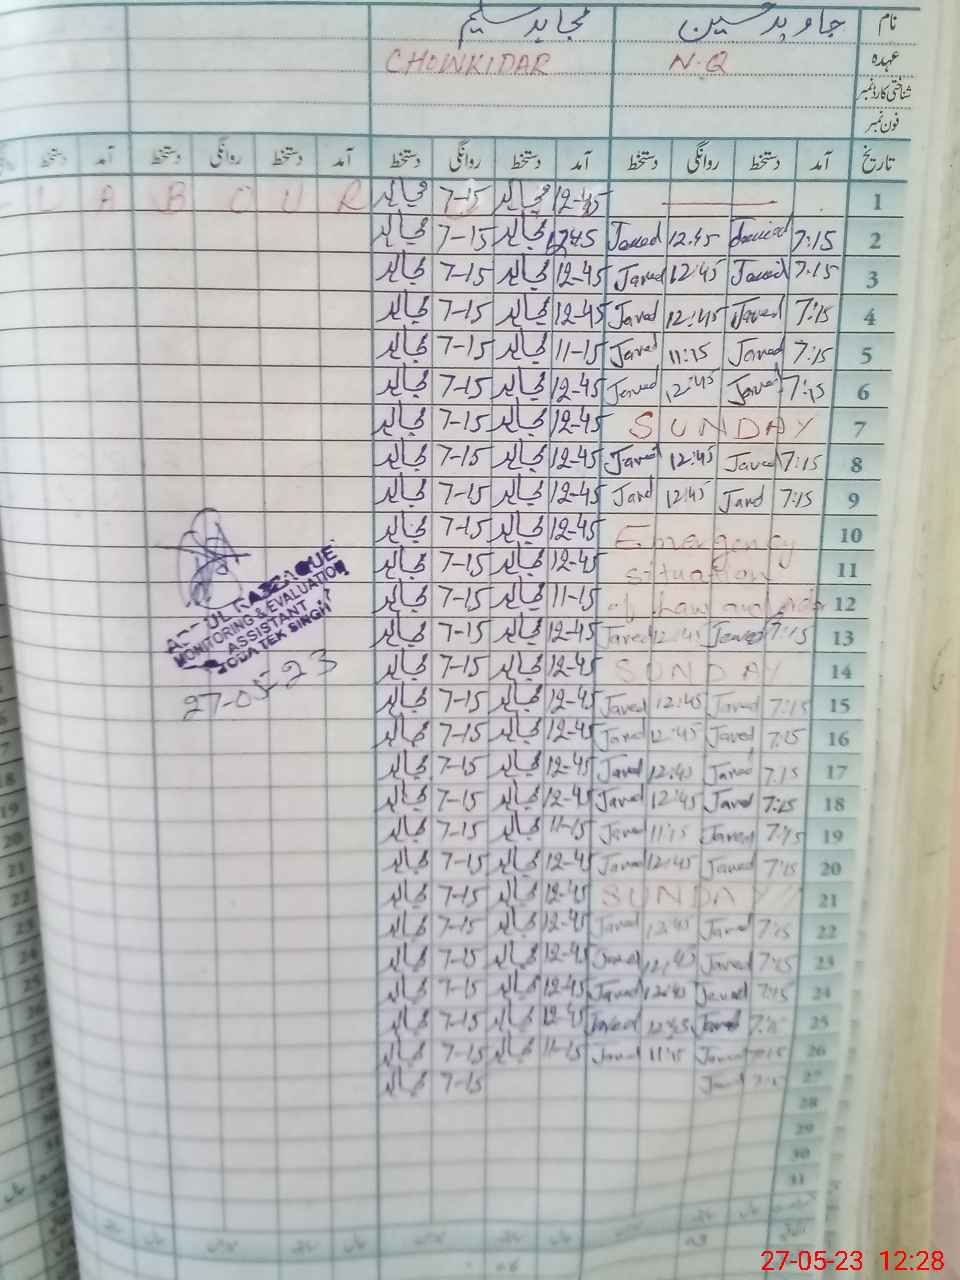 نام جاوید حسین مجاہد سلیم
عہدہ N.Q CHOWKIDAR
شناختی کارڈ نمبر
فون نمبر
تاریخ آمد دستخط روانگی دستخط آمد دستخط روانگی دستخط آمد دستخط روانگی دستخط آمد دستخط
1 12-45 مجاہد 7-15 مجاہد L A B O U R
2 7:15 Javed 12:45 Javed 1245 مجاہد 7-15 مجاہد
3 7:15 Javed 12:45 Javed 12-45 مجاہد 7-15 مجاہد
4 7:15 Javed 12:45 Javed 12-45 مجاہد 7-15 مجاہد
5 7:15 Javed 11:15 Javed 11-15 مجاہد 7-15 مجاہد
6 7:15 Javed 12:45 Javed 12-45 مجاہد 7-15 مجاہد
7 SUNDAY 12-45 مجاہد 7-15 مجاہد
8 7:15 Javed 12:45 Javed 12-45 مجاہد 7-15 مجاہد
9 7:15 Javed 12:45 Javed 12-45 مجاہد 7-15 مجاہد
10 Emergency 12-45 مجاہد 7-15 مجاہد
11 situation 12-45 مجاہد 7-15 مجاہد
12 of Law and order 11-15 مجاہد 7-15 مجاہد
13 7:15 Javed 12:45 Javed 12-45 مجاہد 7-15 مجاہد
14 SUNDAY 12-45 مجاہد 7-15 مجاہد
15 7:15 Javed 12:45 Javed 12-45 مجاہد 7-15 مجاہد
16 7:15 Javed 12:45 Javed 12-45 مجاہد 7-15 مجاہد
17 7:15 Javed 12:45 Javed 12-45 مجاہد 7-15 مجاہد
18 7:15 Javed 12:45 Javed 12-45 مجاہد 7-15 مجاہد
19 7:15 Javed 11:15 Javed 11-15 مجاہد 7-15 مجاہد
20 7:15 Javed 12:45 Javed 12-45 مجاہد 7-15 مجاہد
21 SUNDAY 12-45 مجاہد 7-15 مجاہد
22 7:15 Javed 12:45 Javed 12-45 مجاہد 7-15 مجاہد
23 7:15 Javed 12:45 Javed 12-45 مجاہد 7-15 مجاہد
24 7:15 Javed 12:45 Javed 12-45 مجاہد 7-15 مجاہد
25 7:15 Javed 12:45 Javed 12-45 مجاہد 7-15 مجاہد
26 7:15 Javed 11:15 Javed 11-15 مجاہد 7-15 مجاہد
27 7:15 Javed 7-15 مجاہد
28
29
30
31
RAZZAQUE
MONITORING & EVALUATION
ASSISTANT
TOBA TEK SINGH
27-05-23
27-05-23 12:28